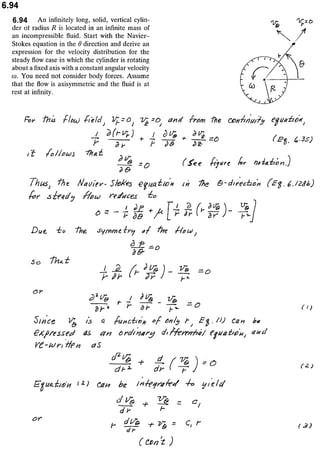 6.94
6.94 An infinitely long, solid, vertical cylin-
der of radius R is located in an infinite mass of
an incompressible fluid. Start with the Navier–
Stokes equation in the θ direction and derive an
expression for the velocity distribution for the
steady flow case in which the cylinder is rotating
about a fixed axis with a constant angular velocity
ω. You need not consider body forces. Assume
that the flow is axisymmetric and the fluid is at
rest at infinity.
θ
ω
R
For this flow field, v_r = 0, v_z = 0, and from the continuity equation,
1/r ∂(r v_r)/∂r + 1/r ∂v_θ/∂θ + ∂v_z/∂z = 0 (Eq. 6.35)
it follows that
∂v_θ/∂θ = 0 (See figure for notation.)
Thus, the Navier-Stokes equation in the θ-direction (Eq. 6.128b)
for steady flow reduces to
0 = - 1/r ∂p/∂θ + μ [ 1/r ∂/∂r ( r ∂v_θ/∂r ) - v_θ/r² ]
Due to the symmetry of the flow,
∂p/∂θ = 0
so that
1/r ∂/∂r ( r ∂v_θ/∂r ) - v_θ/r² = 0
or
∂²v_θ/∂r² + 1/r ∂v_θ/∂r - v_θ/r² = 0 (1)
Since v_θ is a function of only r, Eq. (1) can be
expressed as an ordinary differential equation, and
re-written as
d²v_θ/dr² + d/dr ( v_θ/r ) = 0 (2)
Equation (2) can be integrated to yield
dv_θ/dr + v_θ/r = c₁
or
r dv_θ/dr + v_θ = c₁ r (3)
(con't)